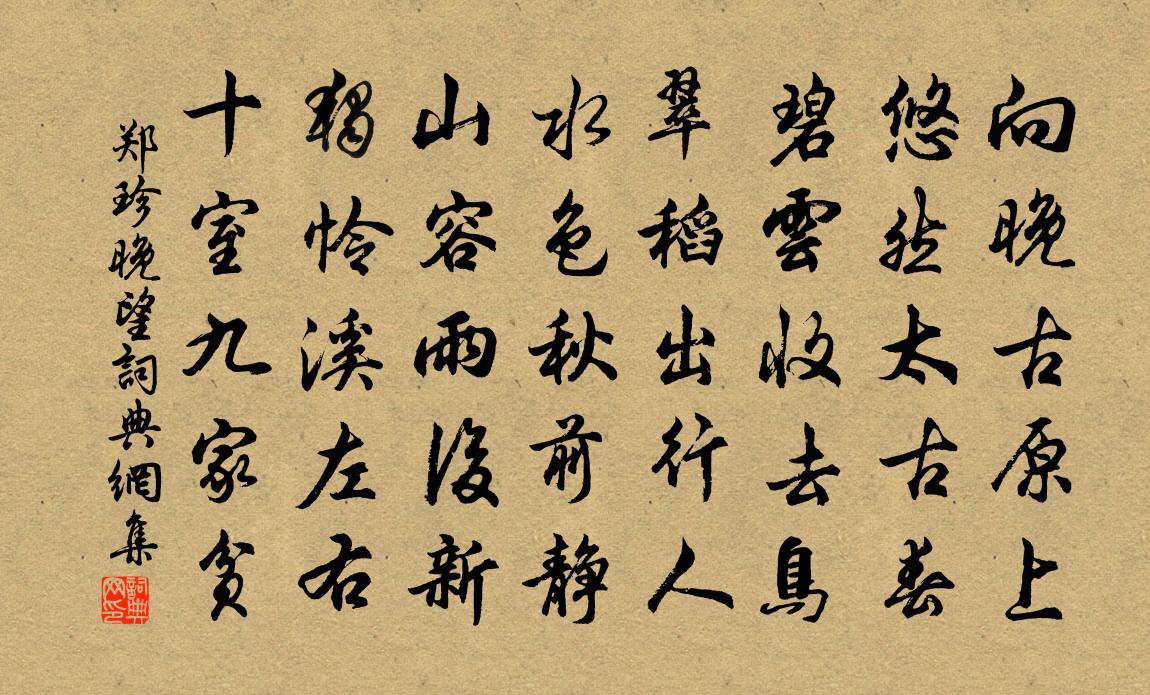 向晚古原上
悠然太古春
碧雲收去鳥
翠稻出行人
水色秋前靜
山容雨後新
獨怜溪左右
十室九家貧
郑珍晚望詞典網集
詞典网印